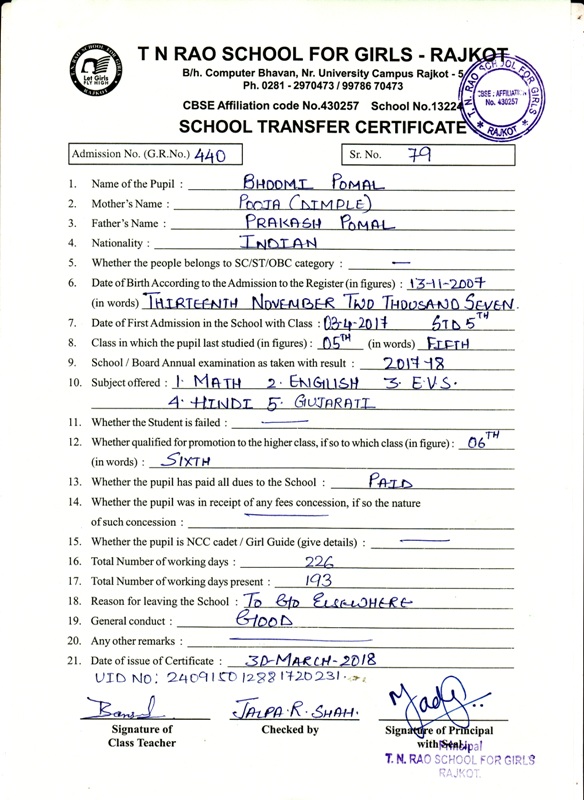 T. N. RAO SCHOOL FOR GIRLS
Let Girls
FLY HIGH
RAJKOT
T N RAO SCHOOL FOR GIRLS - RAJKOT
B/h. Computer Bhavan, Nr. University Campus Rajkot - 5
Ph. 0281 - 2970473 / 99786 70473
CBSE Affiliation code No.430257 School No.13224
T. N. RAO SCHOOL FOR GIRLS
CBSE : AFFILIATION
No. 430257
★ RAJKOT ★
SCHOOL TRANSFER CERTIFICATE
Admission No. (G.R.No.) 440 Sr. No. 79
1. Name of the Pupil : BHOOMI POMAL
2. Mother's Name : POOJA (DIMPLE)
3. Father's Name : PRAKASH POMAL
4. Nationality : INDIAN
5. Whether the people belongs to SC/ST/OBC category : —
6. Date of Birth According to the Admission to the Register (in figures) : 13-11-2007
(in words) THIRTEENTH NOVEMBER TWO THOUSAND SEVEN.
7. Date of First Admission in the School with Class : 03-4-2017 STD 5TH
8. Class in which the pupil last studied (in figures) : 05TH (in words) FIFTH
9. School / Board Annual examination as taken with result : 2017-18
10. Subject offered : 1. MATH 2. ENGLISH 3. E.V.S.
4. HINDI 5. GUJARATI
11. Whether the Student is failed : —
12. Whether qualified for promotion to the higher class, if so to which class (in figure) : 06TH
(in words) : SIXTH
13. Whether the pupil has paid all dues to the School : PAID
14. Whether the pupil was in receipt of any fees concession, if so the nature
of such concession : —
15. Whether the pupil is NCC cadet / Girl Guide (give details) : —
16. Total Number of working days : 226
17. Total Number of working days present : 193
18. Reason for leaving the School : TO GO ELSEWHERE
19. General conduct : GOOD
20. Any other remarks : —
21. Date of issue of Certificate : 30-MARCH-2018
UID NO: 240915012881720231
JALPA.R.SHAH.
Signature of Checked by Signature of Principal
Class Teacher with Seal
Principal
T. N. RAO SCHOOL FOR GIRLS
RAJKOT.